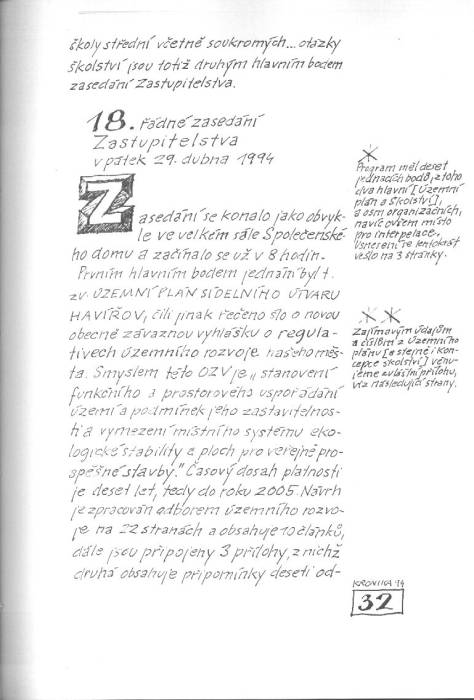 školy střední včetně soukromých... otázky
školství jsou totiž druhým hlavním bodem
zasedání Zastupitelstva.
18. řádné zasedání
Zastupitelstva
v pátek 29. dubna 1994
Zasedání se konalo jako obvyk-
le ve velkém sále Společenské-
ho domu a začínalo se už v 8 hodin.
Prvním hlavním bodem jednání byl t.
zv. ÚZEMNÍ PLÁN SÍDELNÍHO ÚTVARU
HAVÍŘOV, čili jinak řečeno šlo o novou
obecně závaznou vyhlášku o regula-
tivech územního rozvoje našeho měs-
ta. Smyslem této OZV je „stanovení
funkčního a prostorového uspořádání
území a podmínek jeho zastavitelnos-
ti a vymezení místního systému eko-
logické stability a ploch pro veřejně pro-
spěšné stavby." Časový dosah platnosti
je deset let, tedy do roku 2005. Návrh
je zpracován odborem územního rozvo-
je na 22 stranách a obsahuje 10 článků,
dále jsou připojeny 3 přílohy, z nichž
druhá obsahuje připomínky deseti od-
Program měl deset
jednacích bodů, z toho
dva hlavní [Územní
plán a Školství],
a osm organizačních,
navíc ovšem místo
pro interpelace.
Usnesení se tentokrát
vešlo na 3 stránky.
Zajímavým údajům
a číslům z Územního
plánu [a stejně i kon-
cepce školství] věnu-
jeme zvláštní přílohu,
viz následující strany.
KRONIKA '94
32